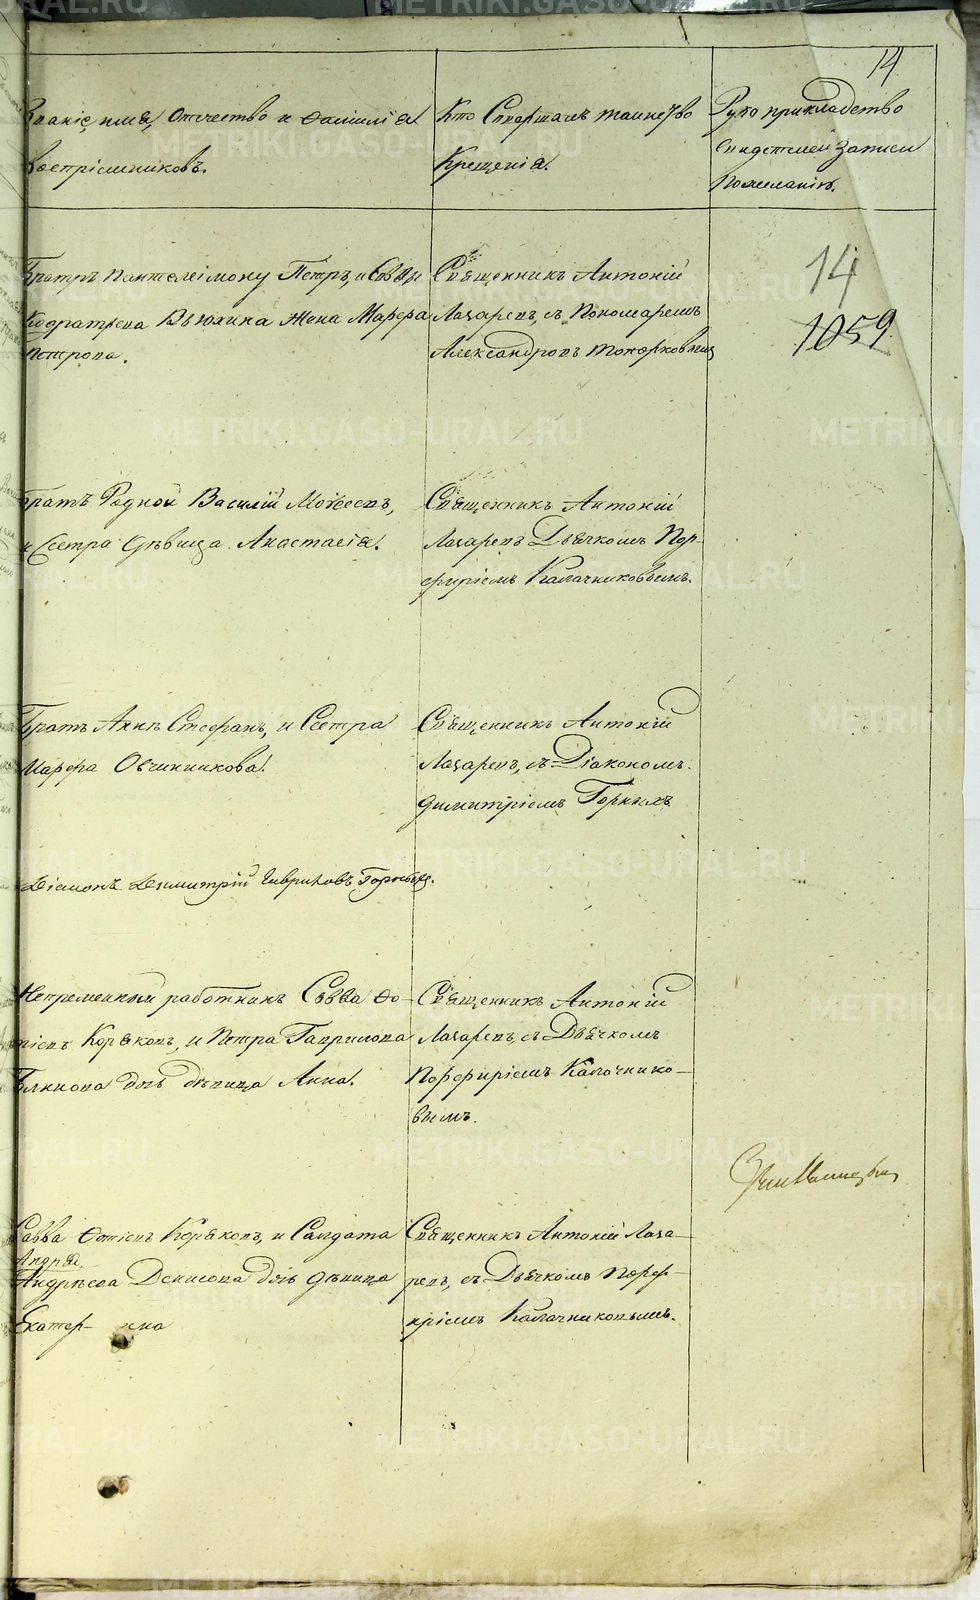 14
Званіе, имя, Отчество и Фамилія
Воспріемниковъ.
Кто Совершалъ таинство
Крещенія.
Рукоприкладство
свидетелей записи
по желанію.
Братъ Пантелеімону Петръ, и Саввы
Кодратьева Вьюхина Жена Марфа
Петрова.
Священникъ Антоній
Лазаревъ, съ Пономаремъ
Александромъ Топорковымъ
14
1059
Братъ Родной Василій Моѵсеевъ,
и Сестра Дѣвица Анастасія.
Священникъ Антоній
Лазаревъ Дьячкомъ Пор-
фиріемъ Калачниковымъ.
Братъ Аннѣ Стефанъ, и Сестра
Марфа Овчинникова.
Священникъ Антоній
Лазаревъ, съ Діакономъ
Димитріемъ Горныхъ
Діаконъ Димитрій Гавриловъ
Непременный работникъ Савва Фо-
тіевъ Коряковъ, и Петра Гаврилова
дочь дѣвица Анна.
Священникъ Антоній
Лазаревъ, съ Дьячкомъ
Порфиріемъ Калачнико-
вымъ.
Савва Фотіевъ Коряковъ, и Салдата
Андрея
Андреева Денисова дочь дѣвица
Екатерина
Священникъ Антоній Лаза-
ревъ, съ Дьячкомъ Порф-
иріемъ Калачниковымъ.
METRIKI.GASO-URAL.RU